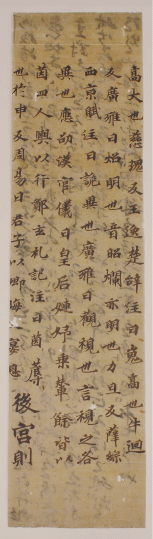 高大也慈瑰反王逸楚辭注曰嵬高也牛迴
反廣雅曰炤明也音昭爛亦明也力旦反薛綜
西京賦注曰詭異也廣雅曰觀視也言視之各
異也應劭漢官儀曰皇后婕妤乘輦餘皆以
茵四人輿以行鄭玄札記注曰茵蓐
也於申反周易曰君子以嚮晦
後宮則